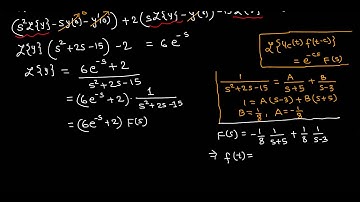 (s²ℒ{y} - sy(0) - y'(0)) + 2(sℒ{y} - y(0))
ℒ{y}(s²+2s-15) - 2 = 6e^{-s}
ℒ{y} = (6e^{-s} + 2)/(s²+2s-15)
= (6e^{-s}+2) · 1/(s²+2s-15)
= (6e^{-s}+2) F(s)
ℒ{u_c(t) f(t-c)}
= e^{-cs} F(s)
1/(s²+2s-15) = A/(s+5) + B/(s-3)
1 = A(s-3) + B(s+5)
B = 1/8, A = -1/8
F(s) = -1/8 1/(s+5) + 1/8 1/(s-3)
⇒ f(t) =